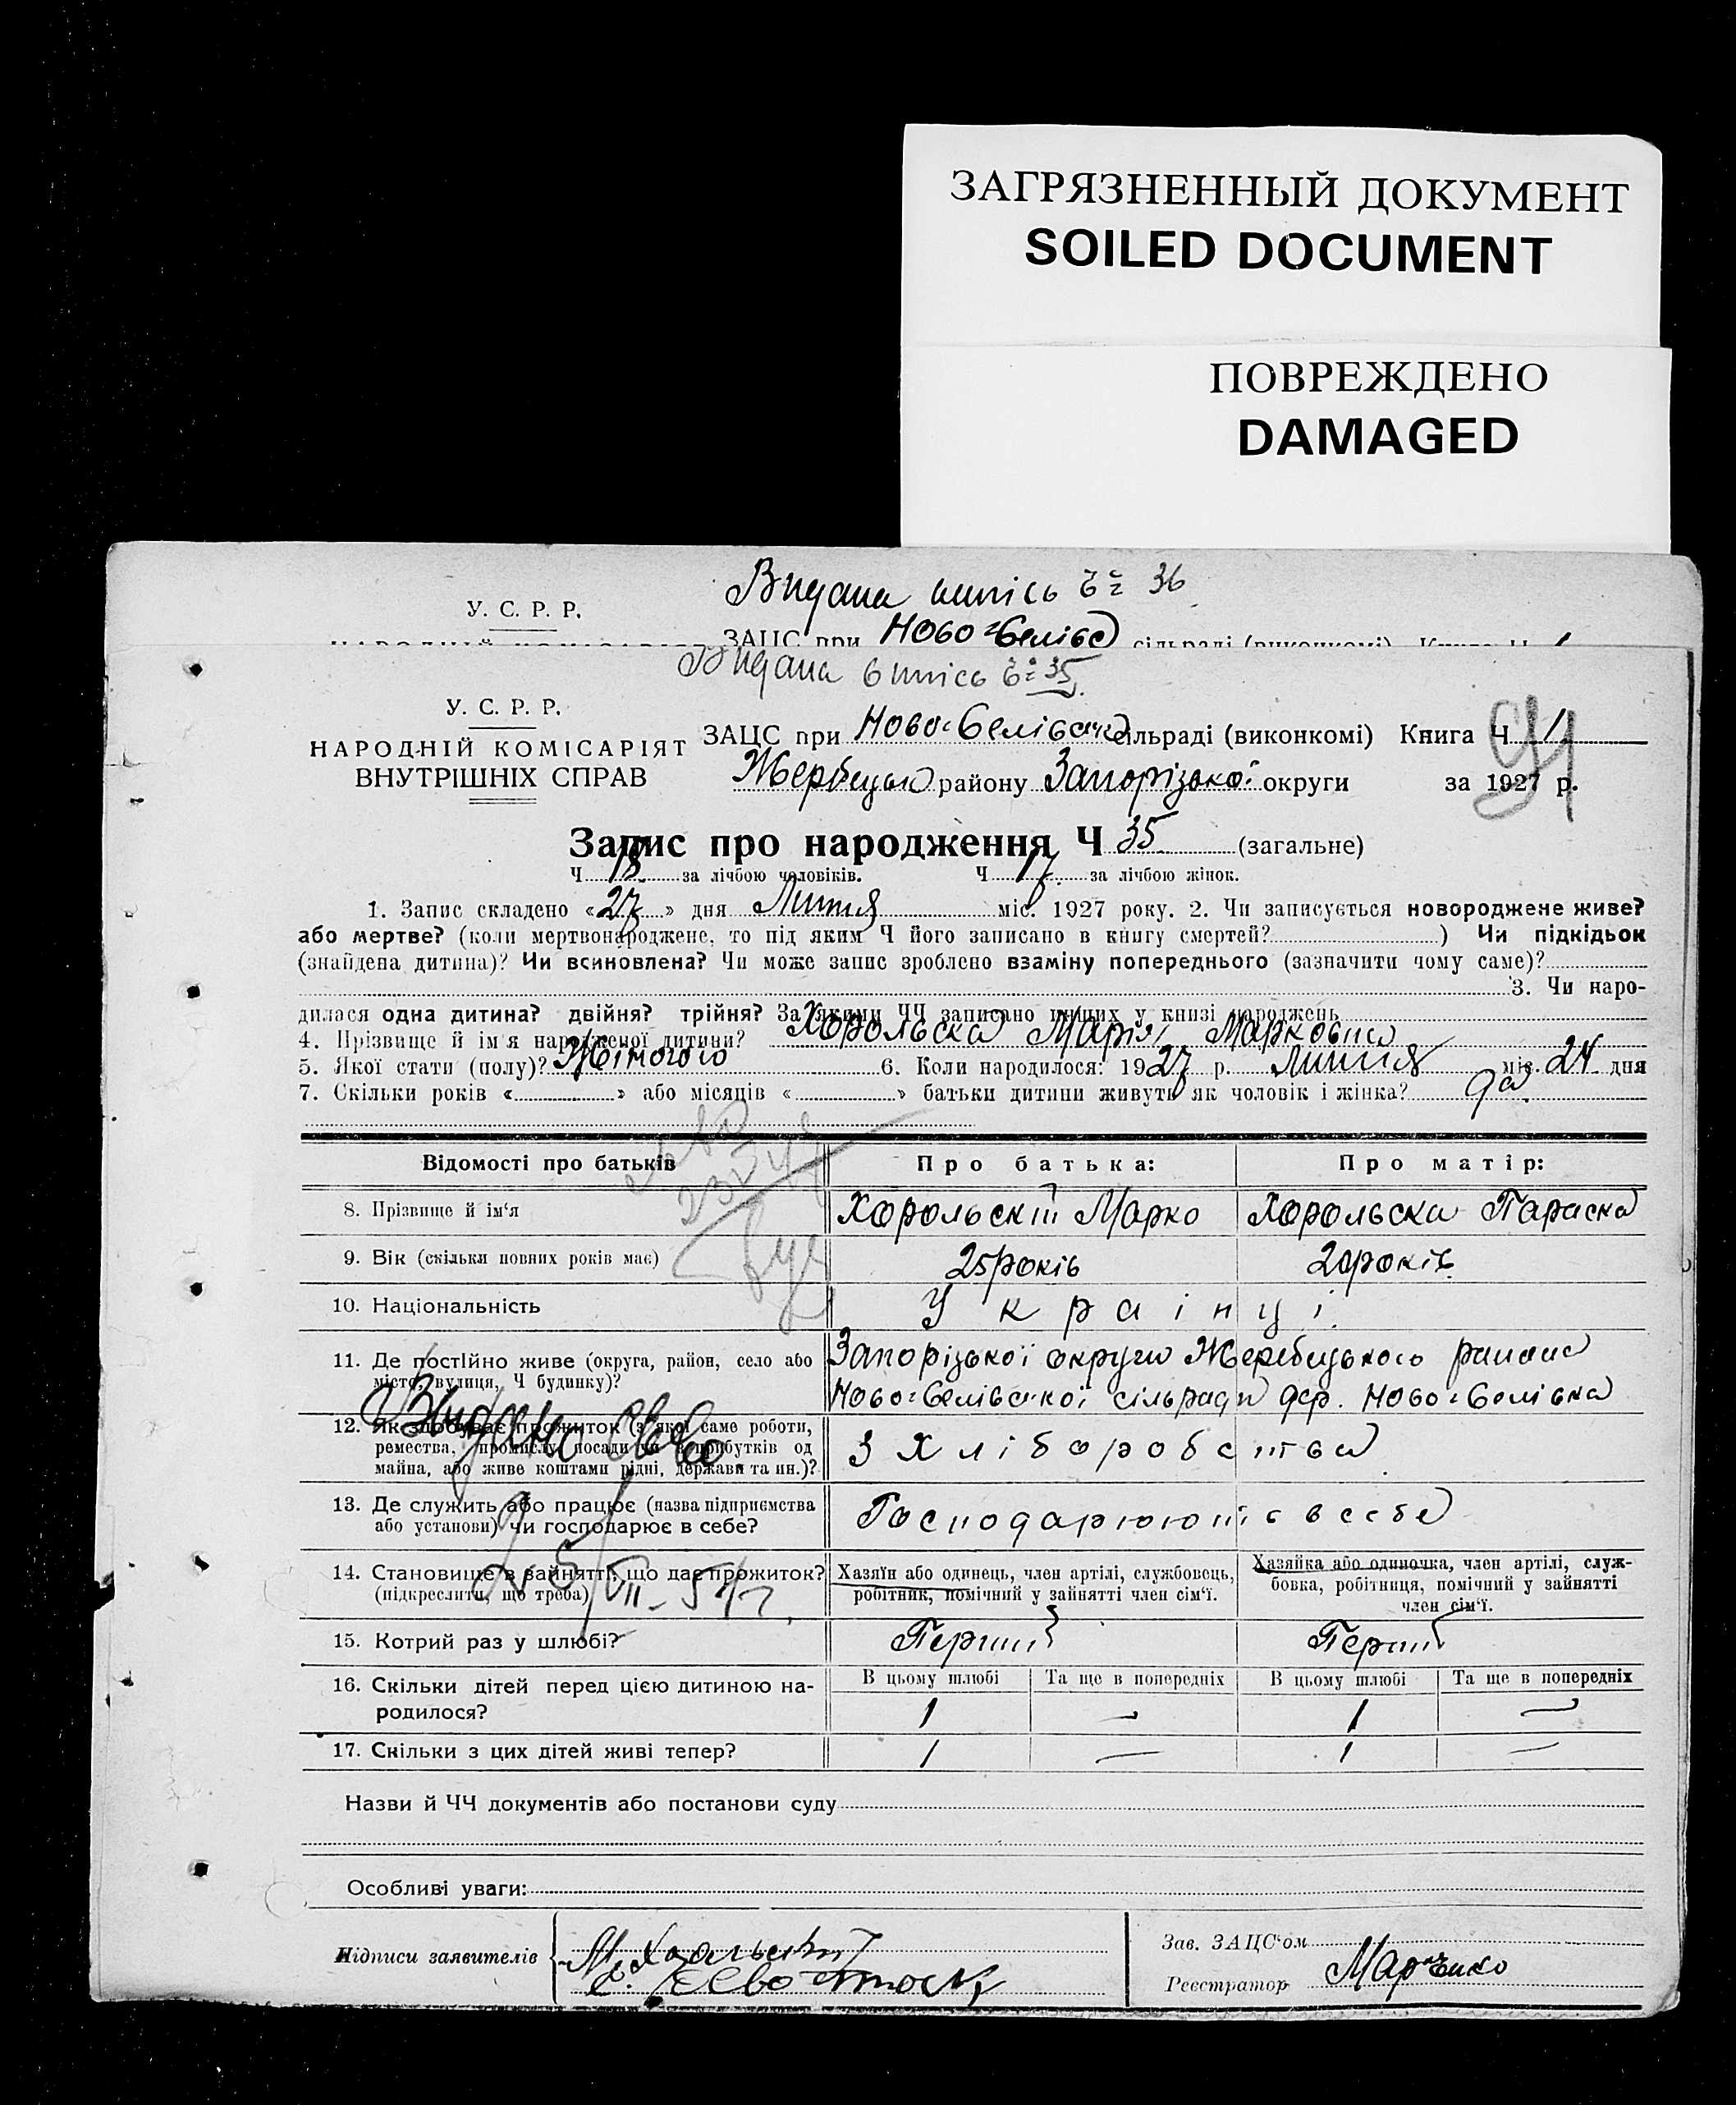 ЗАГРЯЗНЕННЫЙ ДОКУМЕНТ
SOILED DOCUMENT
ПОВРЕЖДЕНО
DAMAGED
Видана випісь 36
У. С. Р. Р.
ЗАЦС при Ново-Белівс сільраді (виконкомі)
Видана випісь 35
У. С. Р. Р.
НАРОДНІЙ КОМІСАРІЯТ
ВНУТРІШНІХ СПРАВ
ЗАЦС при сільраді (виконкомі) Книга Ч 1
Жеребецько району Запорізької округи за 1927 р.
91
Запис про народження Ч 35 (загальне)
Ч 18 за лічбою чоловіків. Ч 17 за лічбою жінок.
1. Запис складено «27» дня Липня міс. 1927 року. 2. Чи записується новороджене живе?
або мертве? (коли мертвонароджене, то під яким Ч його записано в книгу смертей?) Чи підкідьок
(знайдена дитина)? Чи всиновлена? Чи може запис зроблено взаміну попереднього (зазначити чому саме)?
3. Чи наро-
дилася одна дитина? двійня? трійня? За якими ЧЧ записано инших у книзі народжень
4. Прізвище й ім'я народженої дитини? Хорольска Марія Марковна
5. Якої стати (полу)? Жіночого 6. Коли народилося: 1927 р. Липня міс. 24 дня
7. Скільки років « » або місяців « » батьки дитини живуть як чоловік і жінка?
Відомості про батьків Про батька: Про матір:
8. Прізвище й ім'я Хорольскій Марко Хорольска Параска
9. Вік (скільки повних років має) 25 років 20 років
10. Національність Українці
11. Де постійно живе (округа, район, село або місто, вулиця, Ч будинку)?
Запорізької округи Жеребецького района
Ново-Белівської сільради Ново-Белівка
12. Як здобуває прожиток (з якої саме роботи,
ремества, промислу, посади чи з прибутків од
майна, або живе коштами рідні, держави та ин.)?
З Хліборобства
13. Де служить або працює (назва підприємства
або установи) чи господарює в себе?
Господарюють в себе
14. Становище в зайнятті, що дає прожиток?
(підкреслити, що треба)
Хазяїн або одинець, член артілі, службовець,
робітник, помічний у зайнятті член сім'ї.
Хазяйка або одиночка, член артілі, служ-
бовка, робітниця, помічний у зайнятті
член сім'ї.
15. Котрий раз у шлюбі? Перший Перший
16. Скільки дітей перед цією дитиною на-
родилося?
В цьому шлюбі Та ще в попередніх В цьому шлюбі Та ще в попередніх
1 — 1 —
17. Скільки з цих дітей живі тепер? 1 — 1 —
Назви й ЧЧ документів або постанови суду
Особливі уваги:
Підписи заявителів
Зав. ЗАЦС'ом
Реєстратор Марченко